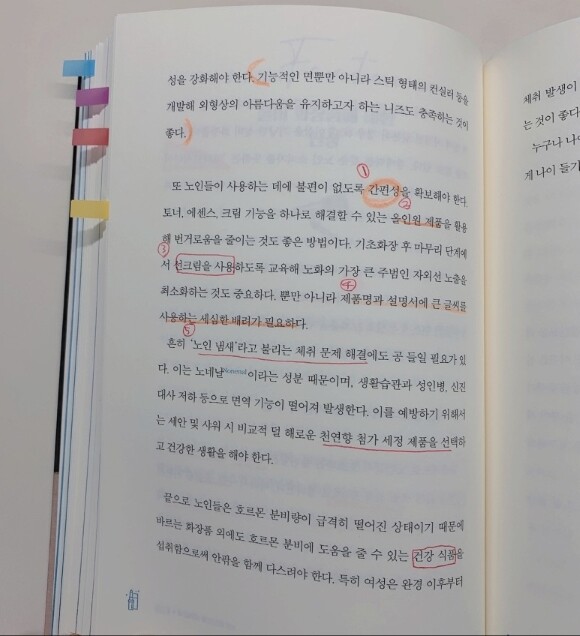 성을 강화해야 한다. 기능적인 면뿐만 아니라 스틱 형태의 컨실러 등을
개발해 외형상의 아름다움을 유지하고자 하는 니즈도 충족하는 것이
좋다.
①
또 노인들이 사용하는 데에 불편이 없도록 간편성을 확보해야 한다.
②
토너, 에센스, 크림 기능을 하나로 해결할 수 있는 올인원 제품을 활용
해 번거로움을 줄이는 것도 좋은 방법이다. 기초화장 후 마무리 단계에
③
서 선크림을 사용하도록 교육해 노화의 가장 큰 주범인 자외선 노출을
④
최소화하는 것도 중요하다. 뿐만 아니라 제품명과 설명서에 큰 글씨를
사용하는 세심한 배려가 필요하다.
⑤
흔히 ‘노인 냄새’라고 불리는 체취 문제 해결에도 공 들일 필요가 있
다. 이는 노네날Nonenal이라는 성분 때문이며, 생활습관과 성인병, 신진
대사 저하 등으로 면역 기능이 떨어져 발생한다. 이를 예방하기 위해서
는 세안 및 샤워 시 비교적 덜 해로운 천연향 첨가 세정 제품을 선택하
고 건강한 생활을 해야 한다.
끝으로 노인들은 호르몬 분비량이 급격히 떨어진 상태이기 때문에
바르는 화장품 외에도 호르몬 분비에 도움을 줄 수 있는 건강 식품을
섭취함으로써 안팎을 함께 다스려야 한다. 특히 여성은 완경 이후부터
체취 발생이
는 것이 좋다
누구나 나이
게 나이 들기